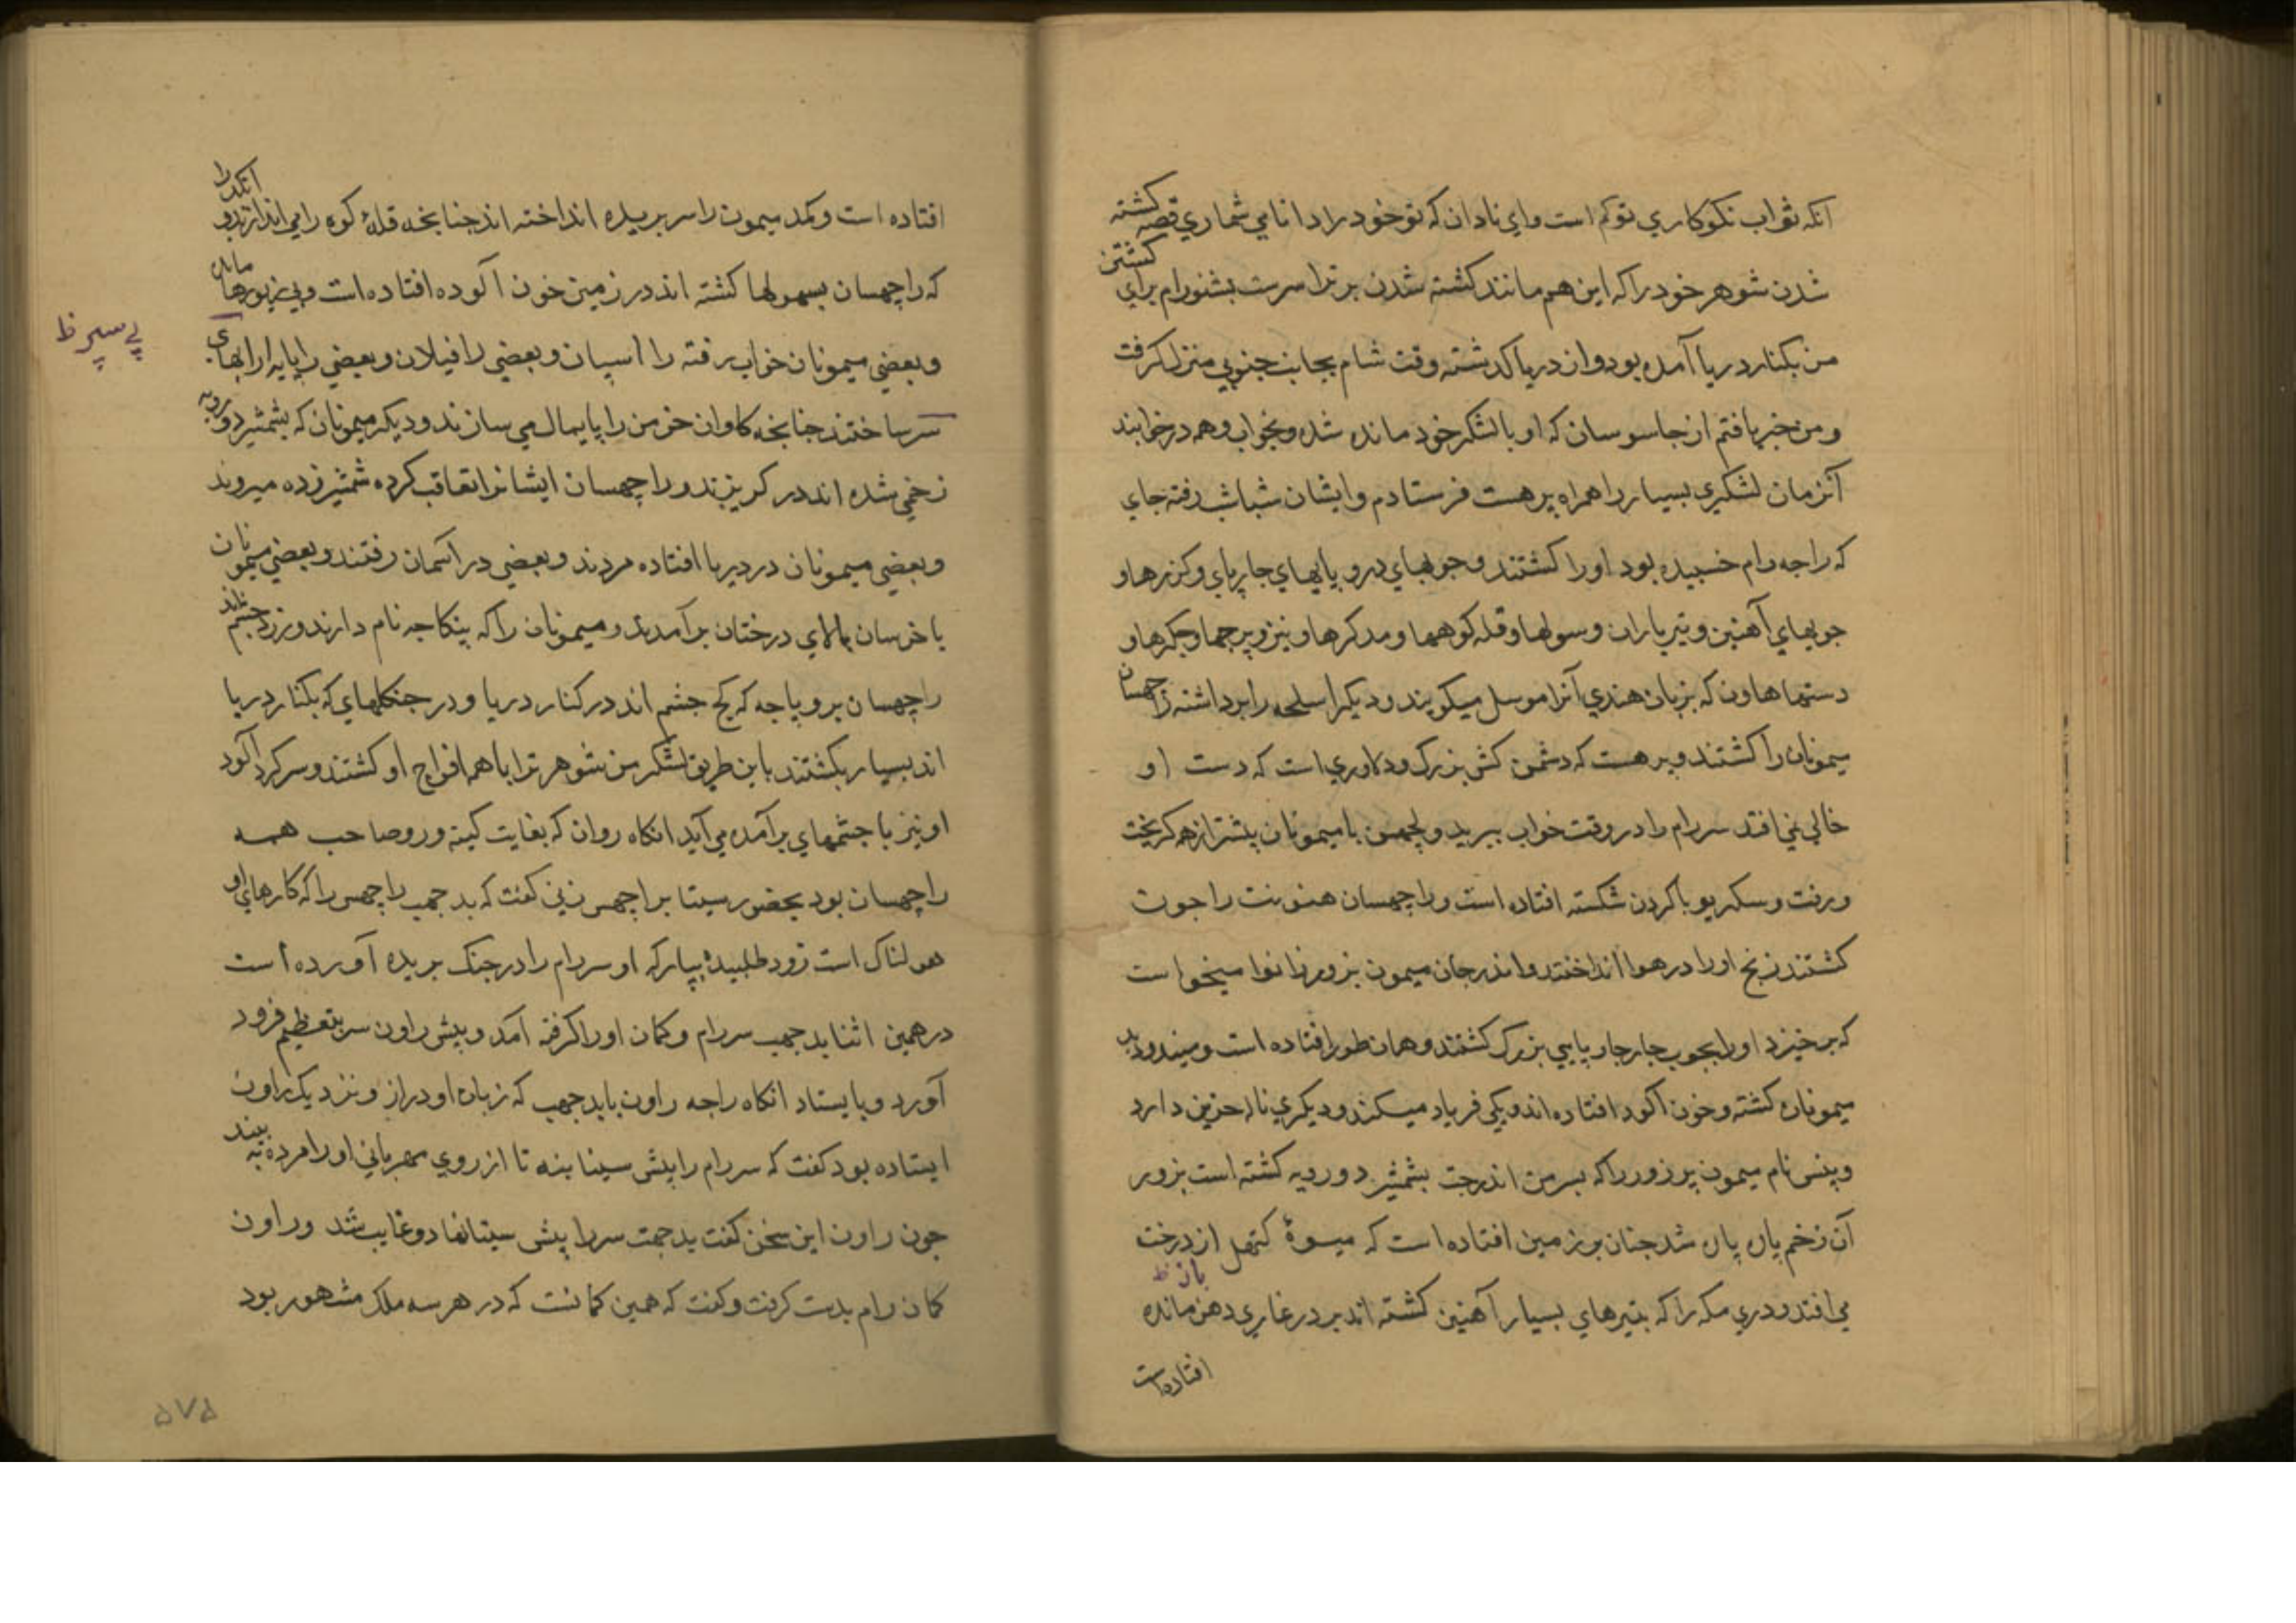 آنکه ثواب نکوکاري تو کم است واي نادان که تو خود را دانامي شماري قصه کشته
شدن شوهر خود را که اين هم مانند کشته شدن برتراسرست بشنو رام براي کشتن
من بکنار دريا آمده بود وان دريا کدشته وقت شام بجانب جنوبي منزل کرفت
و من خبر يافتم از جاسوسان که او با لشکر خود مانده شده و بخواب وهمه درخوابند
آنزمان لشکري بسيار را همراه پرهست فرستادم و ايشان شباشب رفته جاي
که راجه رام خسبيده بود او را کشتند و جوبهاي درو پايهاي جارپاي وکزرها و
جوبهاي آهنين و تير باران و سولها و قله کوهها و مدکرها و نيزو پرجها و جکرها و
دستها هاون که بزبان هندي آنرا موسل ميکويند و ديکر اسلحه را برداشته راجهسان
ميمونان را کشتند و پرهست که دشمن کش بزرک و دلاوري است که دست او
خالي نمي افتد سر رام را در وقت خواب ببريد و لجهمن با ميمونان پيشتر از همه کريخت
ورفت وسکريو با کردن شکسته افتاده است و راجهسان هنونت را جون
کشتند زنخ او را در هوا انداختند واندرجان ميمون بزور زانوا ميخواست
که برخيزد او را بجوب جار جارپايي بزرک کشتند و همان طور افتاده است و ميندو دبد
ميمونان کشته و خون آلود افتاده اند و يکي فرياد ميکند و ديکري ناله حزين دارد
وپنس نام ميمون پر زور را که پسر من اندرجت بشمشير دورويه کشته است بزور
آن زخم پاره پاره شد جنان بر زمين افتاده است که ميوهٔ کتهل از درخت
مي افتد و دري مکه را که بتيرهاي بسيار آهنين کشته اند بر در غاري دهن مانده
باز ظ
افتاده است
افتاده است وکمد ميمون را سر بريده انداخته اند جنانجه قلهٔ کوه را مي اندازند و انکد را
که راجهسان بسهولها کشته اند در زمين خون آلوده افتاده است و بي زيورها مانده
و بعضي ميمونان خواب رفته را اسپان و بعضي را فيلان و بعضي را پايه ارابهاي
پي سپر ظ
سر ساختند جنانجه کاوان خرمن را پايمال مي سازند و ديکر ميمونان که بشمشير دورويه
زخمي شده اند در کريزند و راجهسان ايشانرا تعاقب کرده شمشير زده ميروند
و بعضي ميمونان در دريا افتاده مردند و بعضي در آسمان رفتند و بعضي ميمونان
با خرسان بالاي درختان برآمدند و ميمونان را که پنکاجه نام دارند و زرد جشم
راجهسان بروپاجه که کج جشم اند در کنار دريا و در جنکلهاي که بکنار دريا
اند بسيار بکشتند باين طريق لشکر من شوهر ترا با همه افواج او کشتند و سر کرد آلود
او نيز با جشمهاي برآمده مي آيد انکاه روان که بغايت کينه ور و صاحب همه
راجهسان بود بحضور سيتا براجهس زني کفت که بدجهب راجهس را که کارهاي او
هولناک است زود طلبيده بيار که او سر رام را در جنک بريده آورده است
در همين اثنا بدجهب سر رام و کمان او را کرفته آمد و پيش راون سر بتعظيم فرود
آورد و بايستاد انکاه راجه راون بابدجهب که زبان او دراز و نزديک راون
ايستاده بود کفت که سر رام را پيش سيتا بنه تا از روي مهرباني او را مرده به بيند
جون راون اين سخن کفت بدجهت سر را پيش سيتا نهاد و غايب شد و راون
کمان رام بدست کرفت و کفت که همين کمانست که در هر سه ملک مشهور بود
۵۷۵